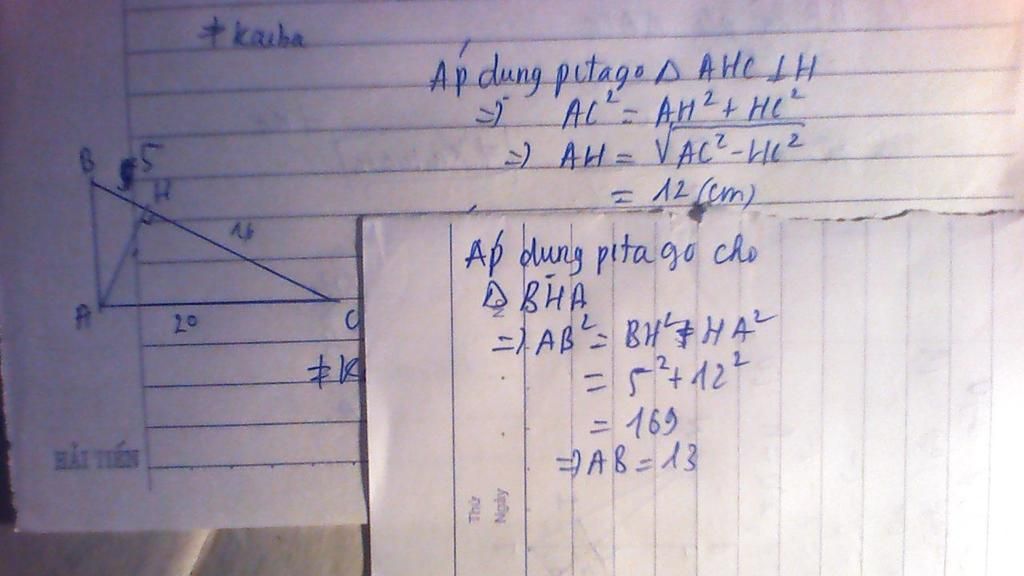 # kaiba
Áp dung pitago Δ AHC ⊥ H
=> AC² = AH² + HC²
=> AH = √AC² - HC²
= 12 (cm)
B
5
H
16
A
20
C
Áp dung pitago cho
Δ BHA
=> AB² = BH² + HA²
= 5² + 12²
= 169
=> AB = 13
HẢI TIẾN
Thứ
Ngày